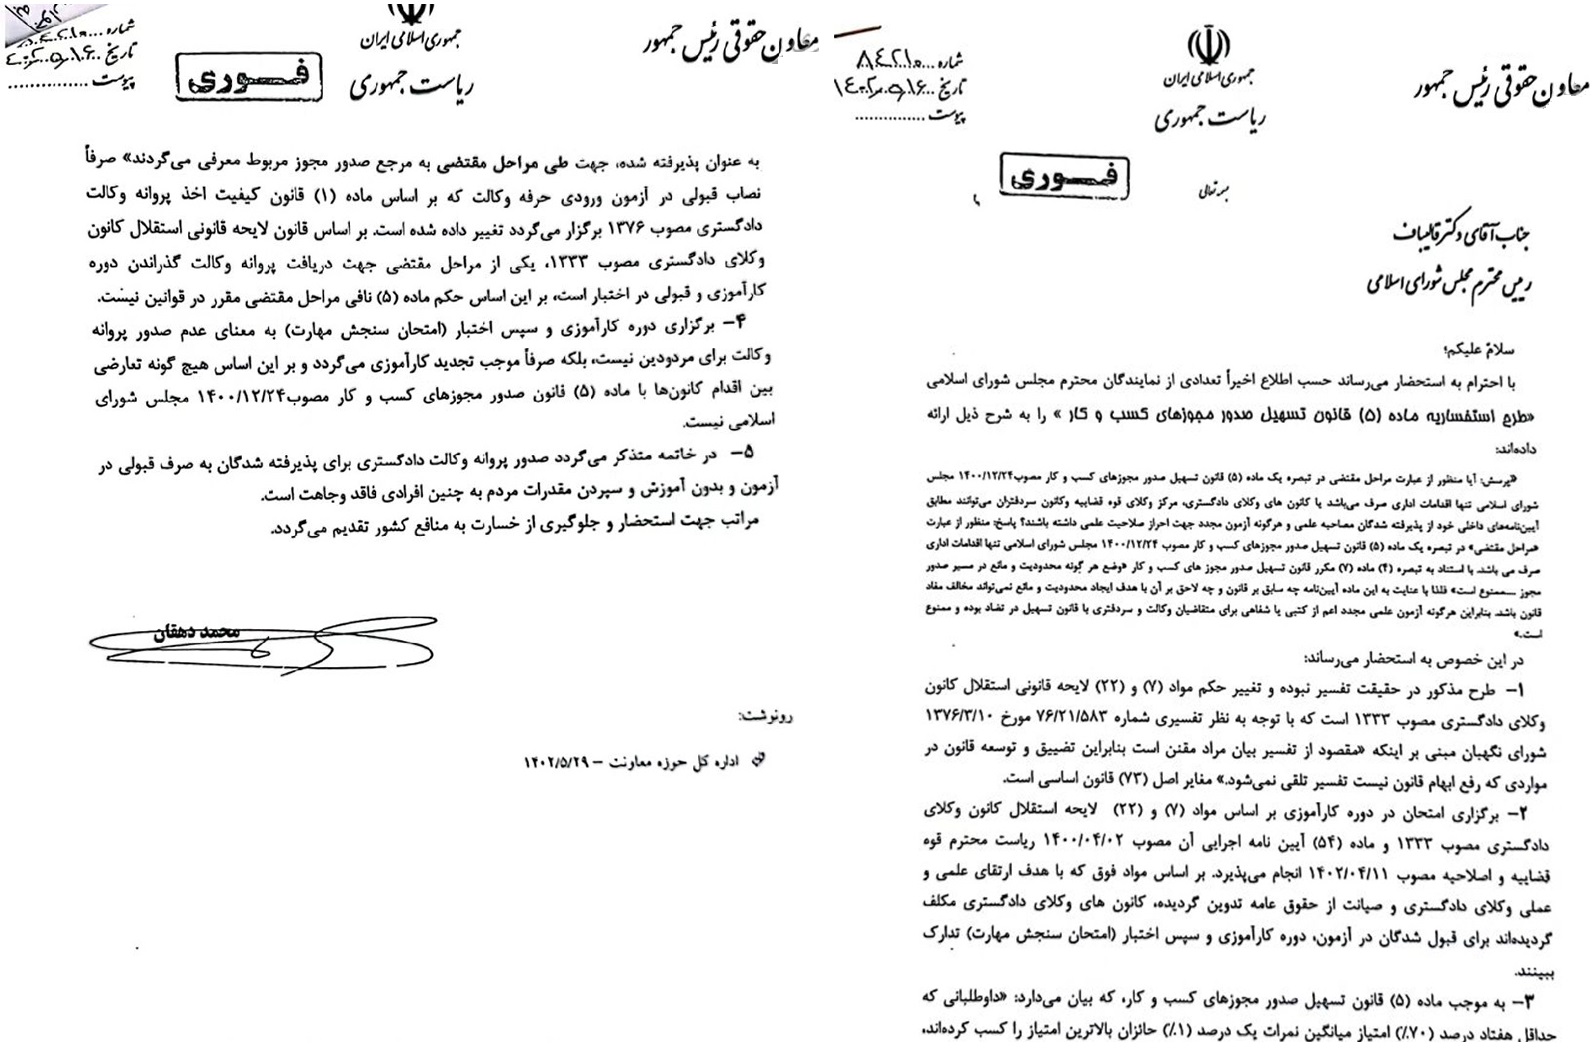 معاون حقوقی رئیس جمهور
جمهوری اسلامی ایران
ریاست جمهوری
شماره ...۸۴۲۱۰
تاریخ ۱۴۰۲/۰۵/۱۶
پیوست ..............
فــوری
بسمه تعالی
جناب آقای دکتر قالیباف
رییس محترم مجلس شورای اسلامی
سلامٌ علیکم؛
با احترام به استحضار می‌رساند حسب اطلاع اخیراً تعدادی از نمایندگان محترم مجلس شورای اسلامی
«طرح استفساریه ماده (۵) قانون تسهیل صدور مجوزهای کسب و کار » را به شرح ذیل ارائه
داده‌اند:
«پرسش: آیا منظور از عبارت مراحل مقتضی در تبصره یک ماده (۵) قانون تسهیل صدور مجوزهای کسب و کار مصوب۱۴۰۰/۱۲/۲۴ مجلس
شورای اسلامی تنها اقدامات اداری صرف می‌باشد یا کانون های وکلای دادگستری، مرکز وکلای قوه قضاییه وکانون سردفتران می‌توانند مطابق
آیین‌نامه‌های داخلی خود از پذیرفته شدگان مصاحبه علمی و هرگونه آزمون مجدد جهت احراز صلاحیت علمی داشته باشند؟ پاسخ: منظور از عبارت
«مراحل مقتضی» در تبصره یک ماده (۵) قانون تسهیل صدور مجوزهای کسب و کار مصوب ۱۴۰۰/۱۲/۲۴ مجلس شورای اسلامی تنها اقدامات اداری
صرف می باشد. با استناد به تبصره (۴) ماده (۷) مکرر قانون تسهیل صدور مجوز های کسب و کار «وضع هر گونه محدودیت و مانع در مسیر صدور
مجوز ...ممنوع است» فلذا با عنایت به این ماده آیین‌نامه چه سابق بر قانون و چه لاحق بر آن با هدف ایجاد محدودیت و مانع نمی‌تواند مخالف مفاد
قانون باشد. بنابراین هرگونه آزمون علمی مجدد اعم از کتبی یا شفاهی برای متقاضیان وکالت و سردفتری با قانون تسهیل در تضاد بوده و ممنوع
است.»
در این خصوص به استحضار می‌رساند:
۱- طرح مذکور در حقیقت تفسیر نبوده و تغییر حکم مواد (۷) و (۲۲) لایحه قانونی استقلال کانون
وکلای دادگستری مصوب ۱۳۳۳ است که با توجه به نظر تفسیری شماره ۷۶/۲۱/۵۸۳ مورخ ۱۳۷۶/۳/۱۰
شورای نگهبان مبنی بر اینکه «مقصود از تفسیر بیان مراد مقنن است بنابراین تضییق و توسعه قانون در
مواردی که رفع ابهام قانون نیست تفسیر تلقی نمی‌شود.» مغایر اصل (۷۳) قانون اساسی است.
۲- برگزاری امتحان در دوره کارآموزی بر اساس مواد (۷) و (۲۲) لایحه استقلال کانون وکلای
دادگستری مصوب ۱۳۳۳ و ماده (۵۴) آیین نامه اجرایی آن مصوب ۱۴۰۰/۰۴/۰۲ ریاست محترم قوه
قضاییه و اصلاحیه مصوب ۱۴۰۲/۰۴/۱۱ انجام می‌پذیرد. بر اساس مواد فوق که با هدف ارتقای علمی و
عملی وکلای دادگستری و صیانت از حقوق عامه تدوین گردیده، کانون های وکلای دادگستری مکلف
گردیده‌اند برای قبول شدگان در آزمون، دوره کارآموزی و سپس اختبار (امتحان سنجش مهارت) تدارک
ببینند.
۳- به موجب ماده (۵) قانون تسهیل صدور مجوزهای کسب و کار، که بیان می‌دارد: «داوطلبانی که
حداقل هفتاد درصد (۷۰٪) امتیاز میانگین نمرات یک درصد (۱٪) حائزان بالاترین امتیاز را کسب کرده‌اند،
معاون حقوقی رئیس جمهور
جمهوری اسلامی ایران
ریاست جمهوری
فــوری
شماره
تاریخ
پیوست ..............
به عنوان پذیرفته شده، جهت طی مراحل مقتضی به مرجع صدور مجوز مربوط معرفی می‌گردند» صرفاً
نصاب قبولی در آزمون ورودی حرفه وکالت که بر اساس ماده (۱) قانون کیفیت اخذ پروانه وکالت
دادگستری مصوب ۱۳۷۶ برگزار می‌گردد تغییر داده شده است. بر اساس قانون لایحه قانونی استقلال کانون
وکلای دادگستری مصوب ۱۳۳۳، یکی از مراحل مقتضی جهت دریافت پروانه وکالت گذراندن دوره
کارآموزی و قبولی در اختبار است، بر این اساس حکم ماده (۵) نافی مراحل مقتضی مقرر در قوانین نیست.
۴- برگزاری دوره کارآموزی و سپس اختبار (امتحان سنجش مهارت) به معنای عدم صدور پروانه
وکالت برای مردودین نیست، بلکه صرفاً موجب تجدید کارآموزی می‌گردد و بر این اساس هیچ گونه تعارضی
بین اقدام کانون‌ها با ماده (۵) قانون صدور مجوزهای کسب و کار مصوب۱۴۰۰/۱۲/۲۴ مجلس شورای
اسلامی نیست.
۵- در خاتمه متذکر می‌گردد صدور پروانه وکالت دادگستری برای پذیرفته شدگان به صرف قبولی در
آزمون و بدون آموزش و سپردن مقدرات مردم به چنین افرادی فاقد وجاهت است.
مراتب جهت استحضار و جلوگیری از خسارت به منافع کشور تقدیم می‌گردد.
محمد دهقان
رونوشت:
اداره کل حوزه معاونت – ۱۴۰۲/۵/۲۹